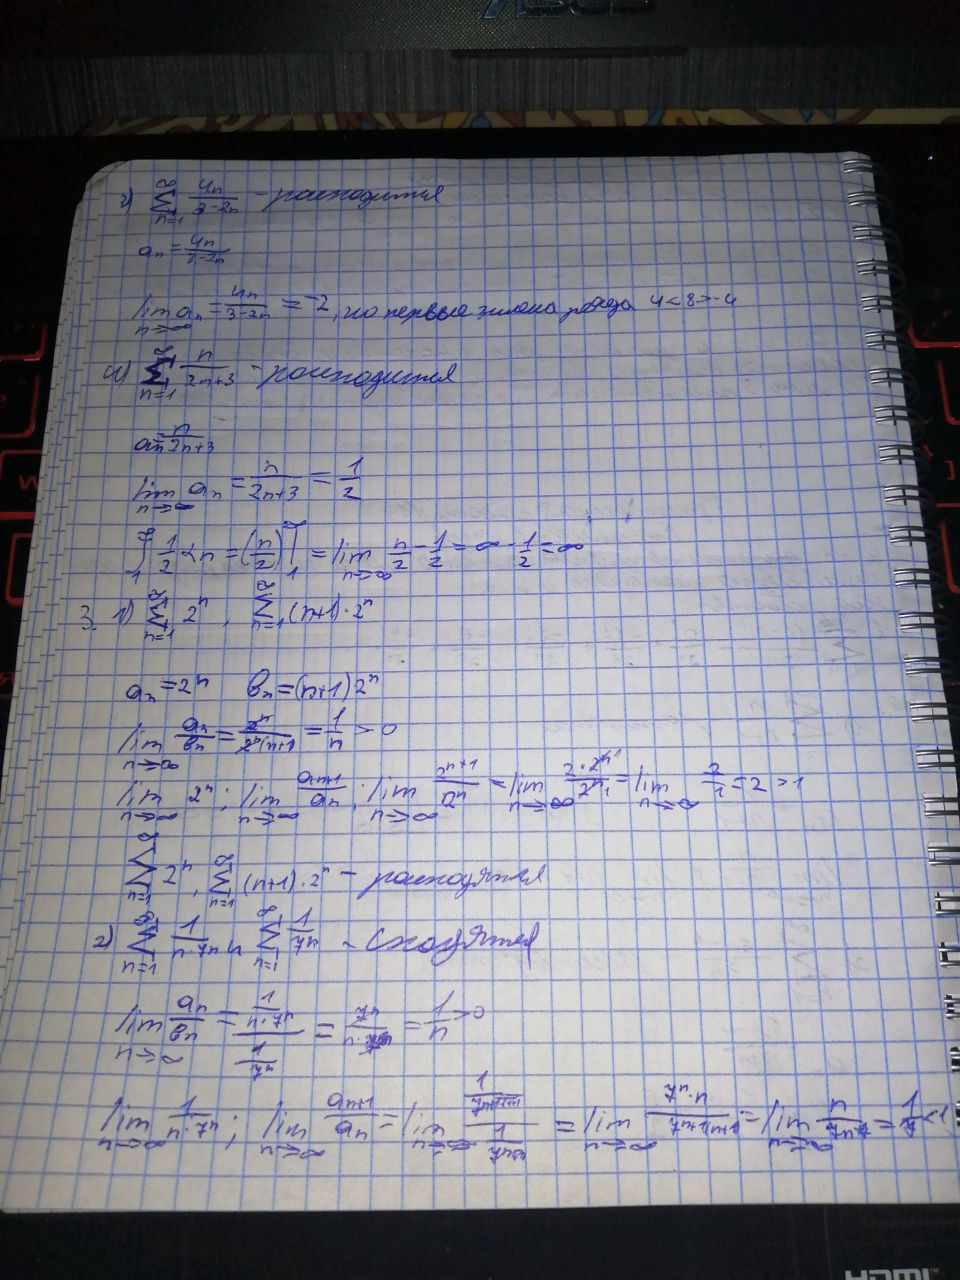 ASUS
г) ∞ Σ n=1 4n/(3-2n) - расходится
aₙ = 4n/(3-2n)
lim n→∞ aₙ = 4n/(3-2n) = -2, но первые члена ряда 4 < 8 > -4
и) ∞ Σ n=1 n/(2n+3) - расходится
aₙ = n/(2n+3)
lim n→∞ aₙ = n/(2n+3) = 1/2
∞ ∫ 1 1/2 dn = (n/2)|∞ 1 = lim n→∞ n/2 - 1/2 = ∞ - 1/2 = ∞
3. 1) ∞ Σ n=1 2ⁿ, ∞ Σ n=1 (n+1)·2ⁿ
aₙ = 2ⁿ вₙ = (n+1) 2ⁿ
lim n→∞ aₙ/вₙ = 2ⁿ/(2ⁿ(n+1)) = 1/n > 0
lim n→∞ 2ⁿ; lim n→∞ aₙ₊₁/aₙ; lim n→∞ 2ⁿ⁺¹/2ⁿ = lim n→∞ 2·2ⁿ/2ⁿ = lim n→∞ 2/1 = 2 > 1
∞ Σ n=1 2ⁿ, ∞ Σ n=1 (n+1)·2ⁿ - расходятся
2) ∞ Σ n=1 1/(n·7ⁿ) и ∞ Σ n=1 1/7ⁿ - сходятся
lim n→∞ aₙ/вₙ = (1/(n·7ⁿ))/(1/7ⁿ) = 7ⁿ/(n·7ⁿ) = 1/n > 0
lim n→∞ 1/(n·7ⁿ); lim n→∞ aₙ₊₁/aₙ = lim n→∞ = lim n→∞ 7ⁿ·n/ = lim n→∞ = 1/7 < 1
HDMI